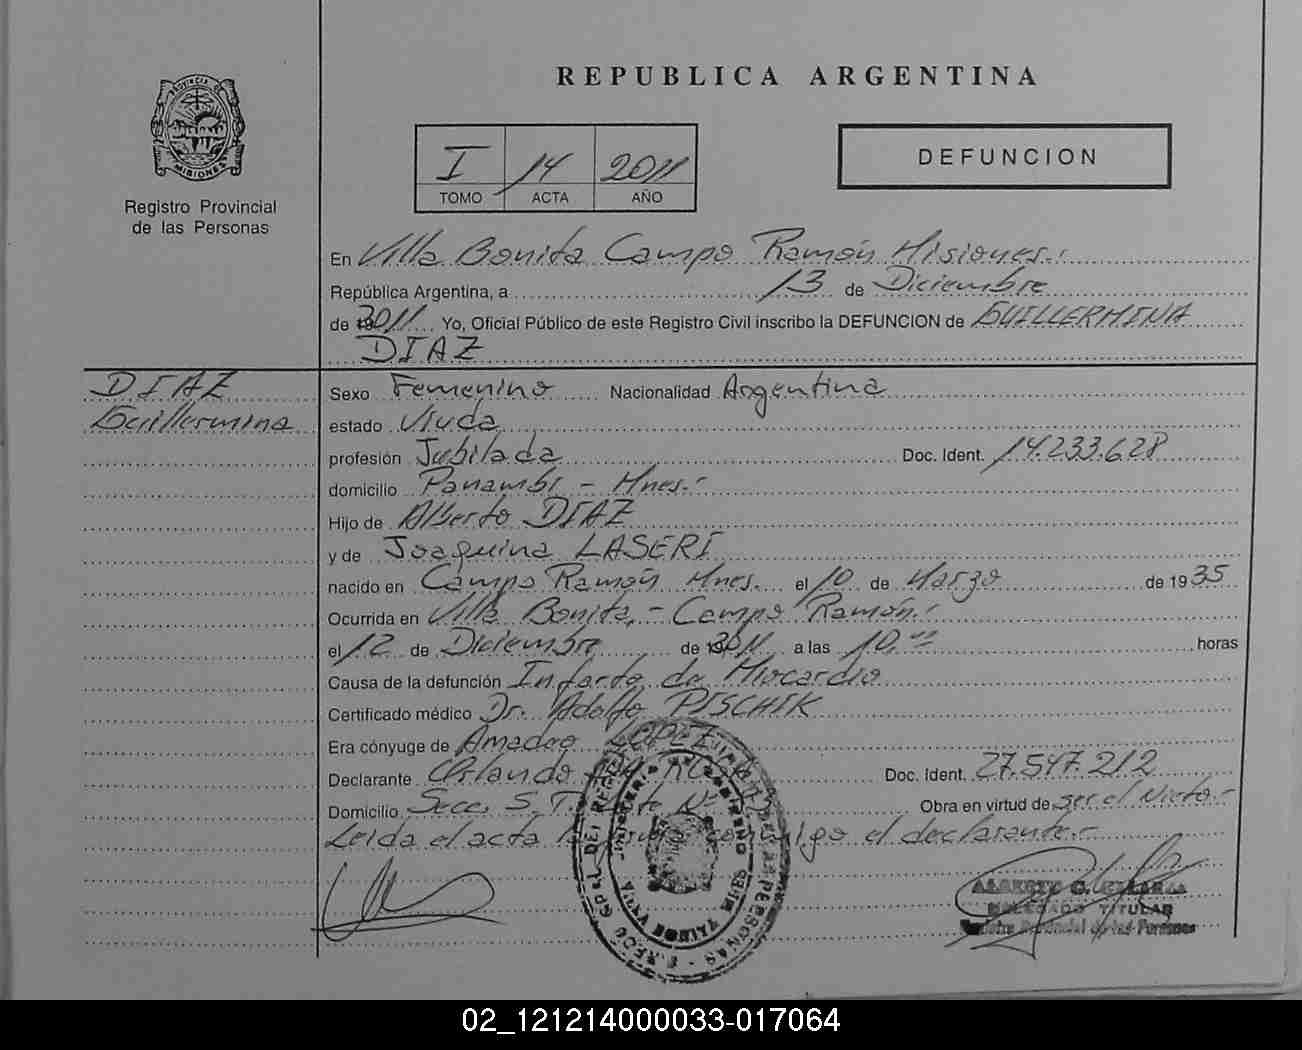 REPUBLICA ARGENTINA
PROVINCIA DE MISIONES
Registro Provincial
de las Personas
I 14 2011
TOMO ACTA AÑO
DEFUNCION
En Villa Bonita Campo Ramón Misiones.-
República Argentina, a 13 de Diciembre
de 2011 Yo, Oficial Público de este Registro Civil inscribo la DEFUNCION de GUILLERMINA
DIAZ
DIAZ
Guillermina
Sexo Femenino Nacionalidad Argentina
estado Viuda
profesión Jubilada Doc. Ident. 14.233.628
domicilio Panambí - Mnes.-
Hijo de Alberto DIAZ
y de Joaquina LASERI
nacido en Campo Ramón Mnes. el 10 de Marzo de 1935
Ocurrida en Villa Bonita.- Campo Ramón.-
el 12 de Diciembre de 2011 a las 10.00 horas
Causa de la defunción Infarto de Miocardio
Certificado médico Dr. Adolfo PISCHIK
Era cónyuge de Amadeo LOPEZ
Declarante Orlando Doc. Ident. 27.547.212
Domicilio Secc. S. T. Nº Obra en virtud de ser el Nieto.-
Leida el acta conmigo el declarante.-
DEL PERSONAS
VILLA BONITA MISIONES
ALBERTO
DELEGADO TITULAR
Registro Provincial de las Personas
02_121214000033-017064